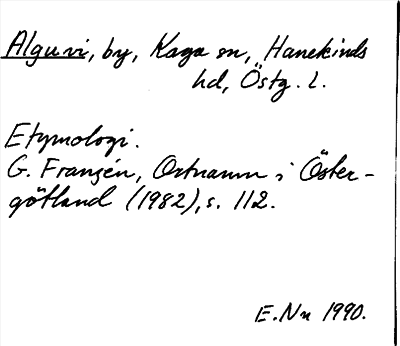 Alguvi, by, Kaga sn, Hanekinds
hd, Östg. l.
Etymologi.
G. Franzén, Ortnamn i Öster-
götland (1982), s. 112.
E. Nn 1990.